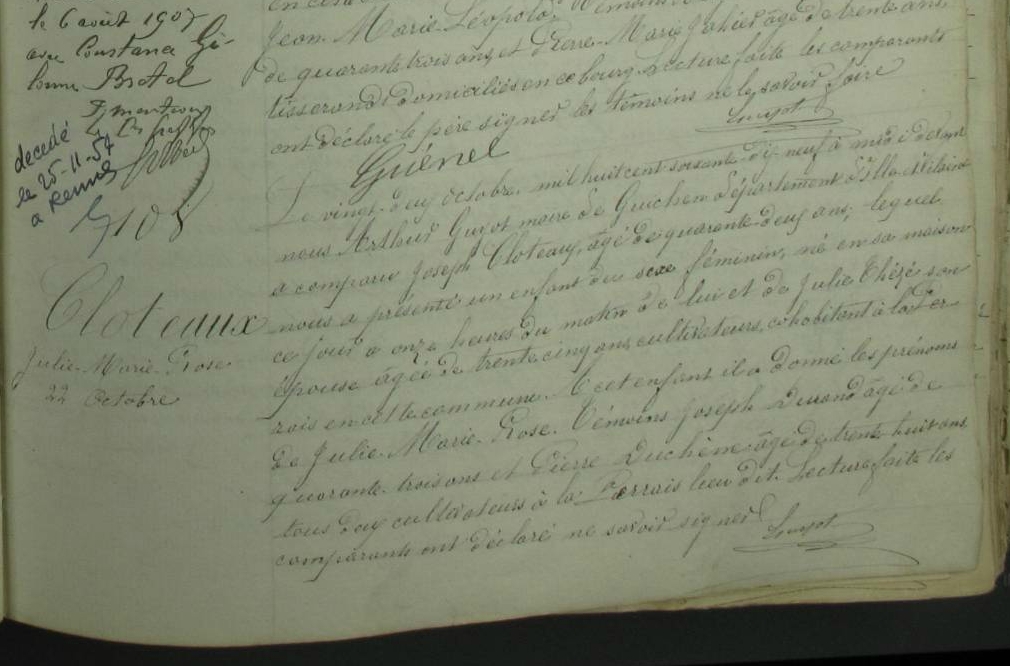 le 6 août 1907
avec Constance
Brotel
décédé
le 25-11-57
à Rennes
108
Cloteaux
Julie-Marie-Rose
22 octobre
Jean-Marie-Léopold. Témoins
de quarante trois ans, et Pierre-Marie âgé de trente ans,
tisserands domiciliés en ce bourg. Lecture faite les comparants
ont déclaré le père signer les témoins ne le savoir faire
Guénel
Guyot
Le vingt-deux octobre mil huit cent soixante dix neuf à midi devant
nous Arthur Guyot maire de Guichen département d'Ille et Vilaine
a comparu Joseph Cloteaux, âgé de quarante deux ans, lequel
nous a présenté un enfant du sexe féminin, né en sa maison
ce jour à onze heures du matin de lui et de Julie Thézé son
épouse âgée de trente cinq ans, cultivateurs, cohabitant à la Per-
rais en cette commune. A cet enfant il a donné les prénoms
de Julie-Marie-Rose. Témoins Joseph Durand âgé de
quarante-trois ans et Pierre Duchêne âgé de trente huit ans
tous deux cultivateurs à la Perrais lieu dit. Lecture faite les
comparants ont déclaré ne savoir signer
Guyot